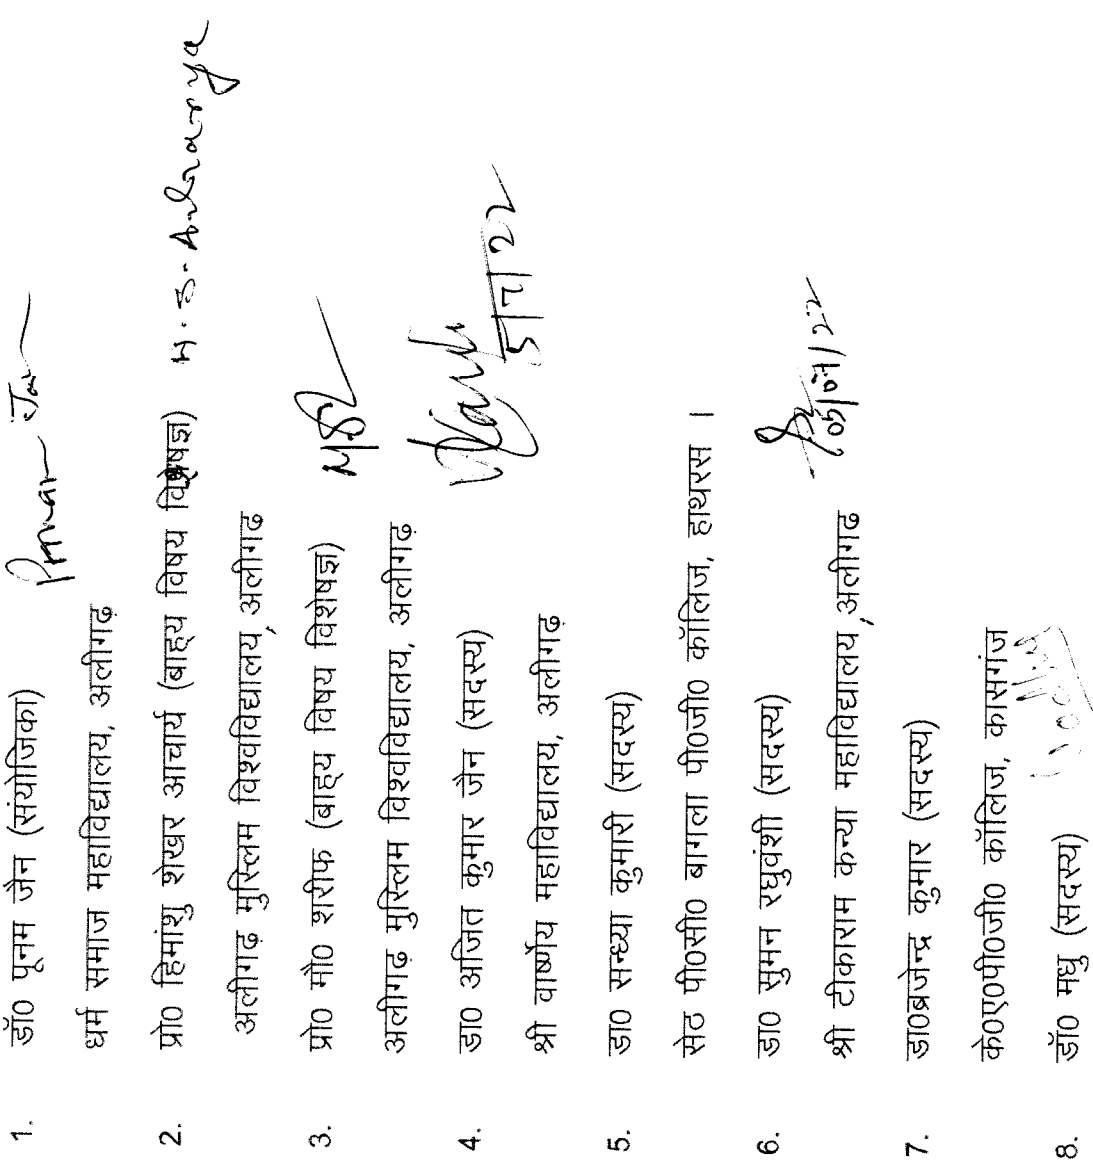 1. डॉ0 पूनम जैन (संयोजिका)
धर्म समाज महाविद्यालय, अलीगढ़
2. प्रो0 हिमांशु शेखर आचार्य (बाह्य विषय विशेषज्ञ) H. S. Acharya
अलीगढ़ मुस्लिम विश्वविद्यालय, अलीगढ
3. प्रो0 मौ0 शरीफ (बाह्य विषय विशेषज्ञ)
अलीगढ़ मुस्लिम विश्वविद्यालय, अलीगढ
4. डा0 अजित कुमार जैन (सदस्य) 5/7/22
श्री वार्ष्णेय महाविद्यालय, अलीगढ
5. डा0 सन्ध्या कुमारी (सदस्य)
सेठ पी0सी0 बागला पी0जी0 कॉलिज, हाथरस ।
6. डा0 सुमन रघुवंशी (सदस्य) 05/07/22
श्री टीकाराम कन्या महाविद्यालय, अलीगढ
7. डा0ब्रजेन्द्र कुमार (सदस्य)
के0ए0पी0जी0 कॉलिज, कासगंज
8. डॉ0 मधु (सदस्य)